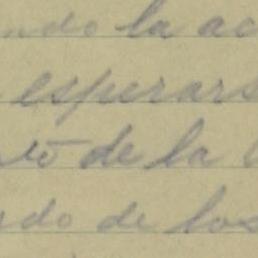 ndo la ac
esperars
to de la
do de los